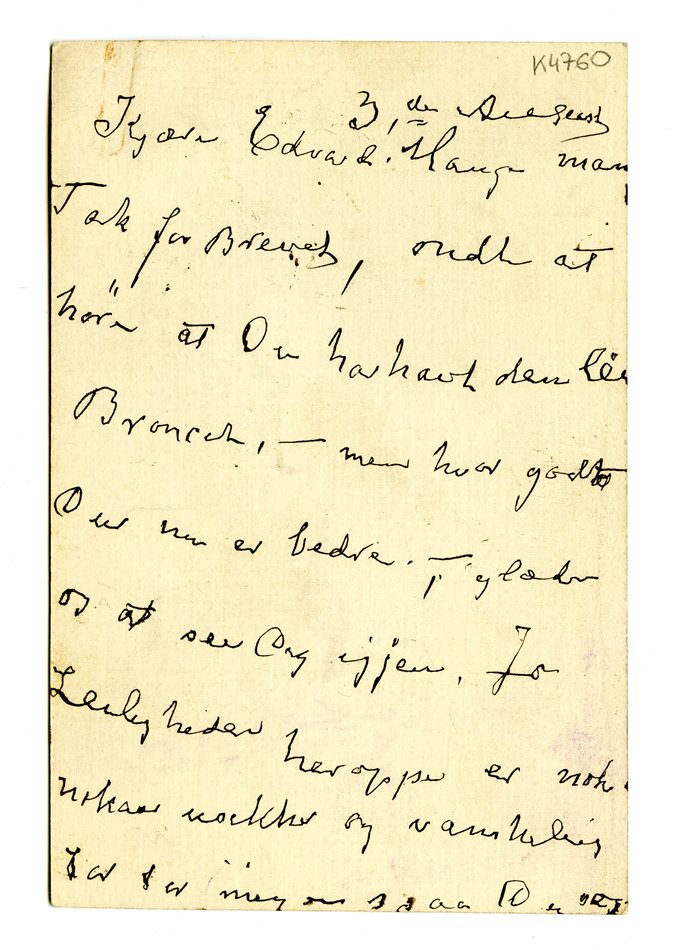 K4760
3, de August
Kjære Edvard. Hauge man
Tak for Brevet, ondt at
høre at Du har havt den
Broncit, — men hvor godt
Du nu er bedre. — glæder
os at see Dig igjen. Jo
Leiligheden heroppe er nok
nokaa vakker og vanskelig